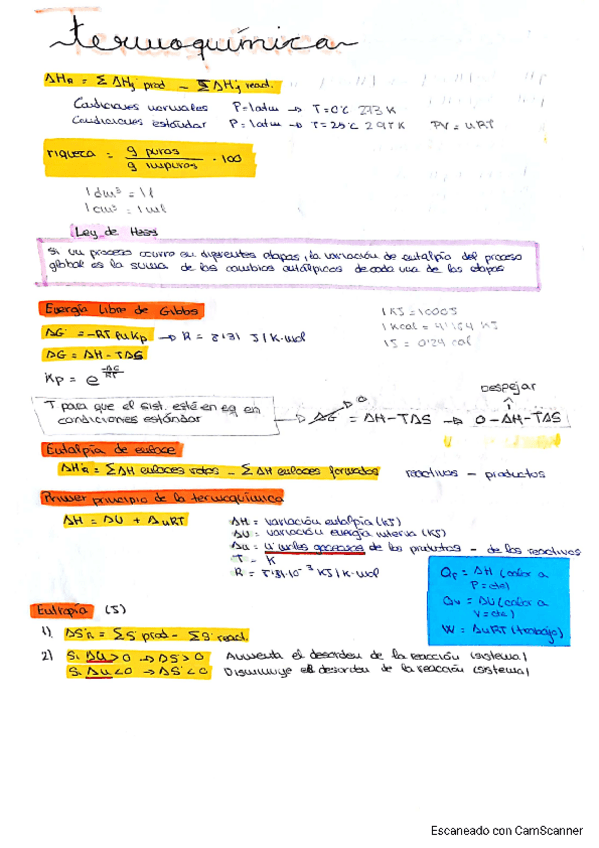 termoquímica
ΔHR = Σ ΔHf prod - Σ ΔHf react.
Condiciones normales P=1atm → T=0°C 273 K
Condiciones estándar P=1atm → T=25°C 298 K PV = nRT
riqueza = g puros / g impuros · 100
1 dm³ = 1 l
1 cm³ = 1 ml
Ley de Hess
Si un proceso ocurre en diferentes etapas, la variación de entalpía del proceso
global es la suma de los cambios entálpicos de cada una de las etapas
Energía Libre de Gibbs
1 KJ = 1000J
ΔG = -RT ln Kp → R = 8'31 J/K·mol
1 Kcal = 4'184 KJ
ΔG = ΔH - TΔS
1J = 0'24 cal
Kp = e^(-ΔG/RT)
DESPEJAR
T para que el sist. esté en eq en
condiciones estándar
→ ΔG → 0 = ΔH - TΔS → 0 = ΔH - TΔS
Entalpía de enlace
ΔHR = Σ ΔH enlaces rotos - Σ ΔH enlaces formados reactivos - productos
Primer principio de la termoquímica
ΔH = ΔU + ΔnRT
ΔH = variación entalpía (KJ)
ΔU = variación energía interna (KJ)
Δn = nº moles gaseosos de los productos - de los reactivos
T = K
R = 8'31·10⁻³ KJ/K·mol
Qp = ΔH (calor a
P=cte)
Qv = ΔU (calor a
V=cte)
W = ΔnRT (trabajo)
Entropía (S)
1) ΔSR = ΣS prod - ΣS react.
2) Si Δn>0 → ΔS>0 Aumenta el desorden de la reacción (sistema)
Si Δn<0 → ΔS<0 Disminuye el desorden de la reacción (sistema)
Escaneado con CamScanner